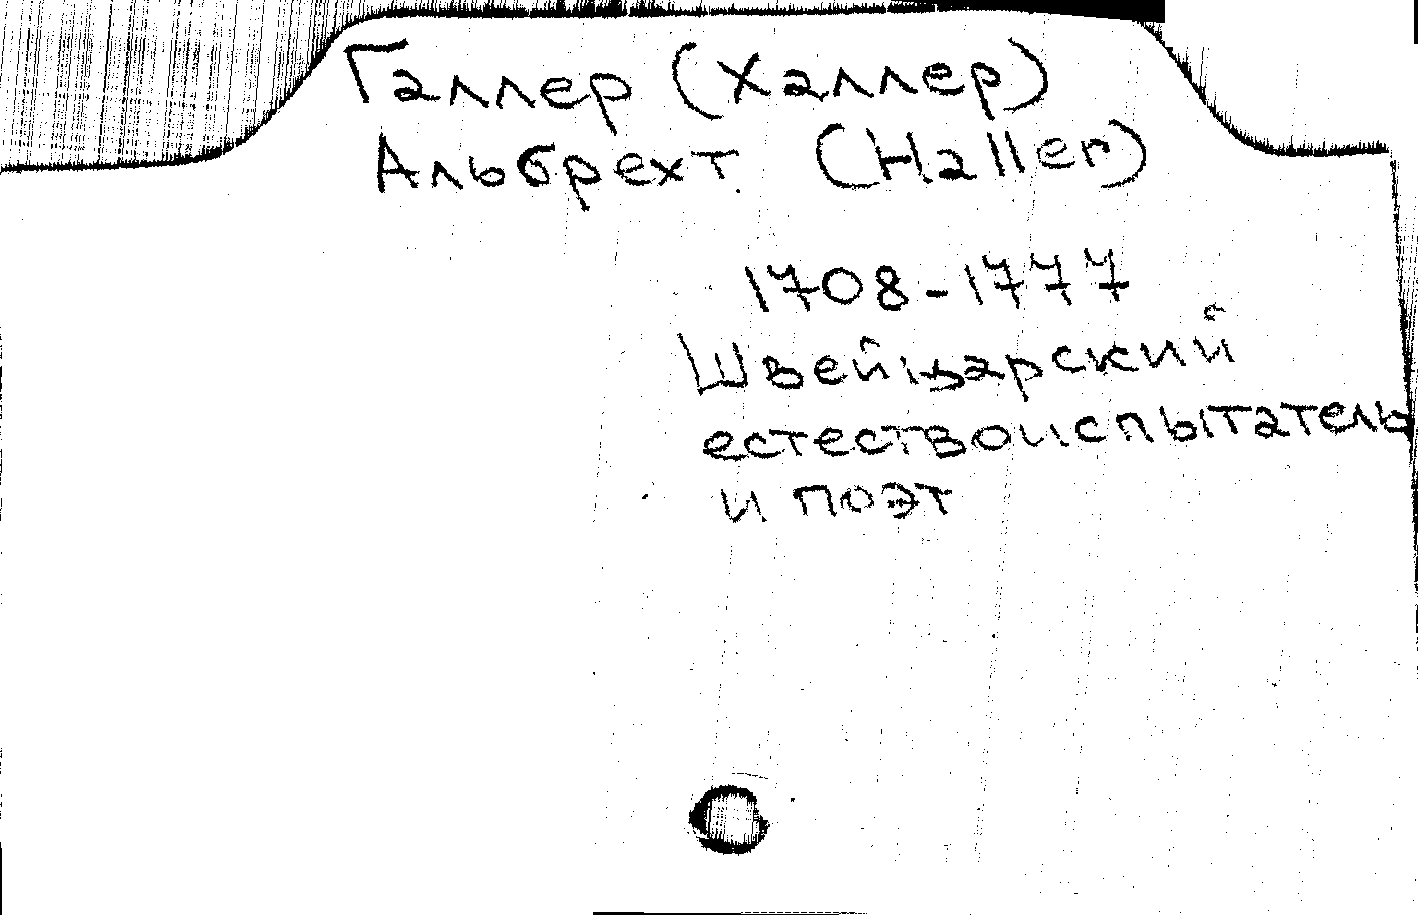 Галлер (Халлер)
Альбрехт (Haller)
1708-1777
Швейцарский
естествоиспытатель
и поэт